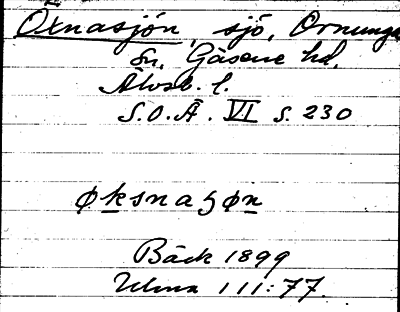 Öxnasjön, sjö, Ornunga
sn. Gäsene hd.
Älvsb. l.
S.O.Ä. VI s. 230
øksnaʒøn
Bäck 1899
Ulma 111:77.